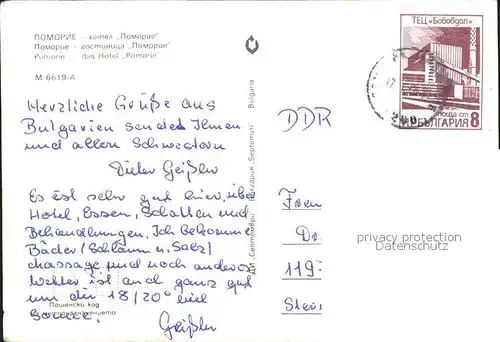 ПОМОРИЕ — хотел „Поморие"
Поморие — гостиница „Поморие"
Pomorie — das Hotel „Pomorie"
М 6619-А
Herzliche Grüße aus
Bulgarien sendet Ihnen
und allen Schwestern
Dieter Geißler
Es ist sehr gut hier, über
Hotel, Essen, Schatten und
Behandlungen. Ich bekomme
Bäder (Schlamm u. Salz)
Massage und noch anderes
Wetter ist auch ganz gut
um die 18/20° viel
Sonne.
Geißler
Пощенски код
местоназначението
ДИ „Септември" България „Septemvri" Bulgaria
ТЕЦ „Бобовдол"
поща ст
НР БЪЛГАРИЯ 8
DDR
Frau
Dr.
119
privacy protection
Datenschutz